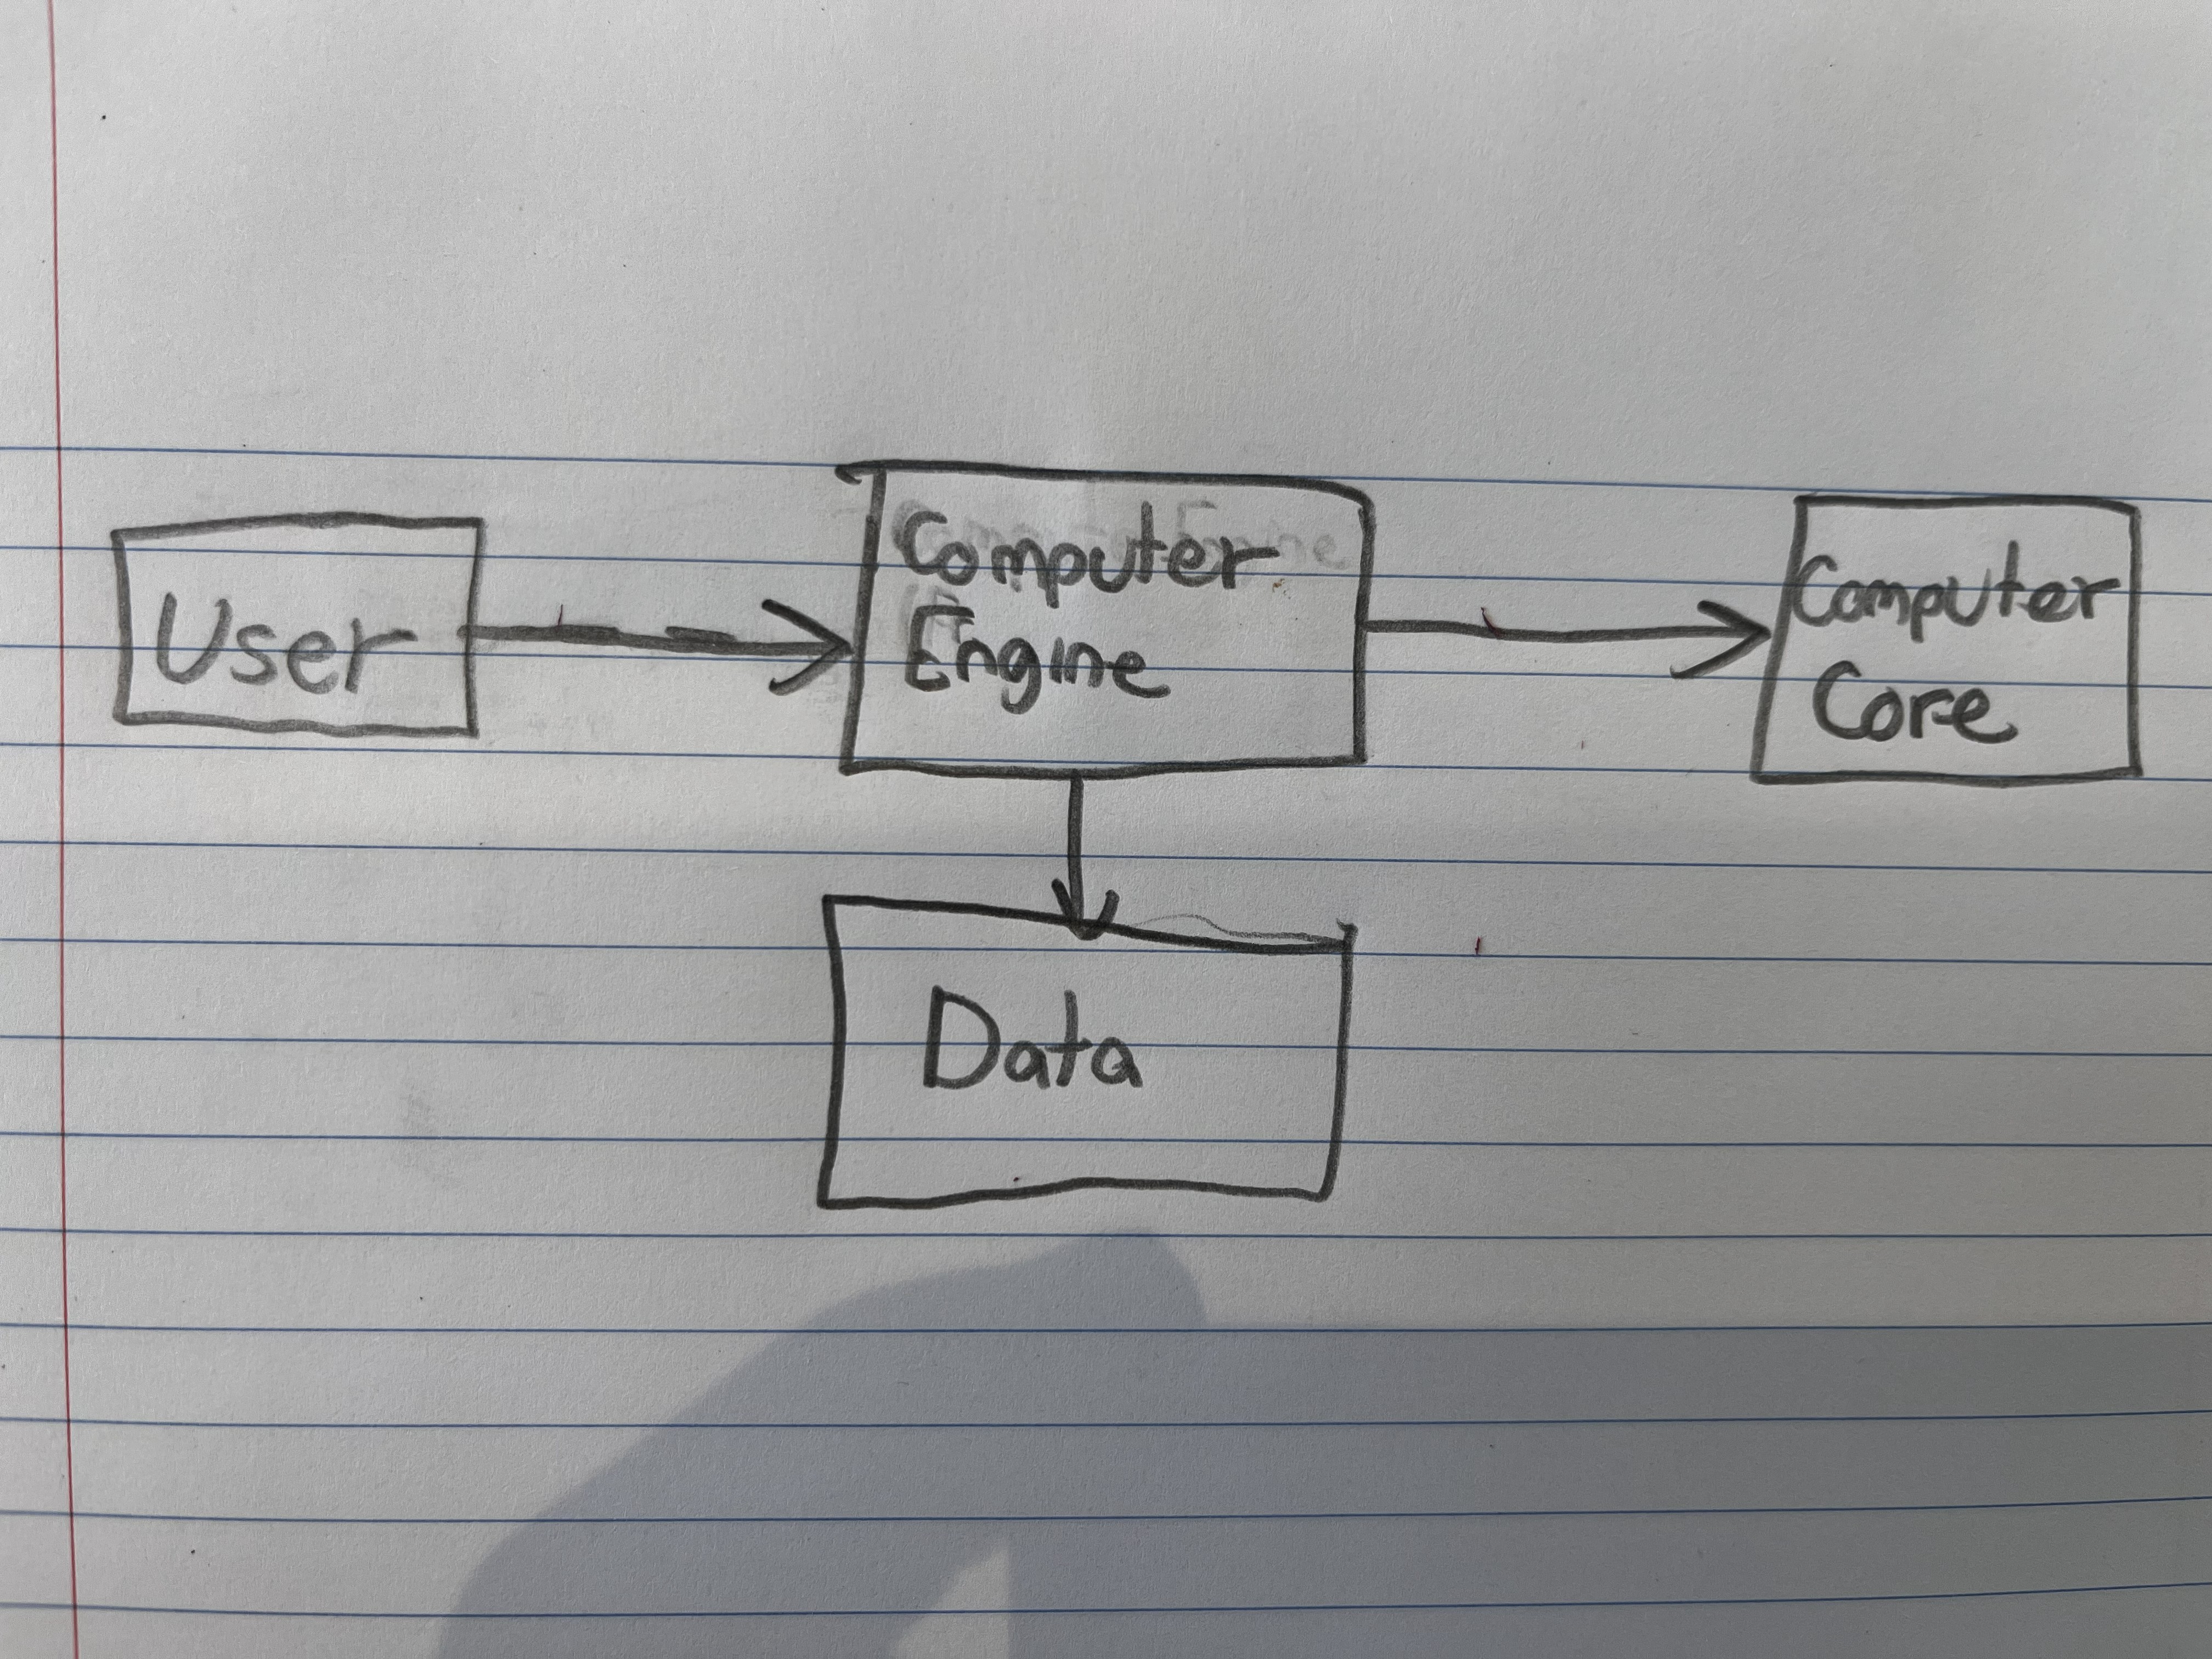 User
Computer
Engine
Computer
Core
Data